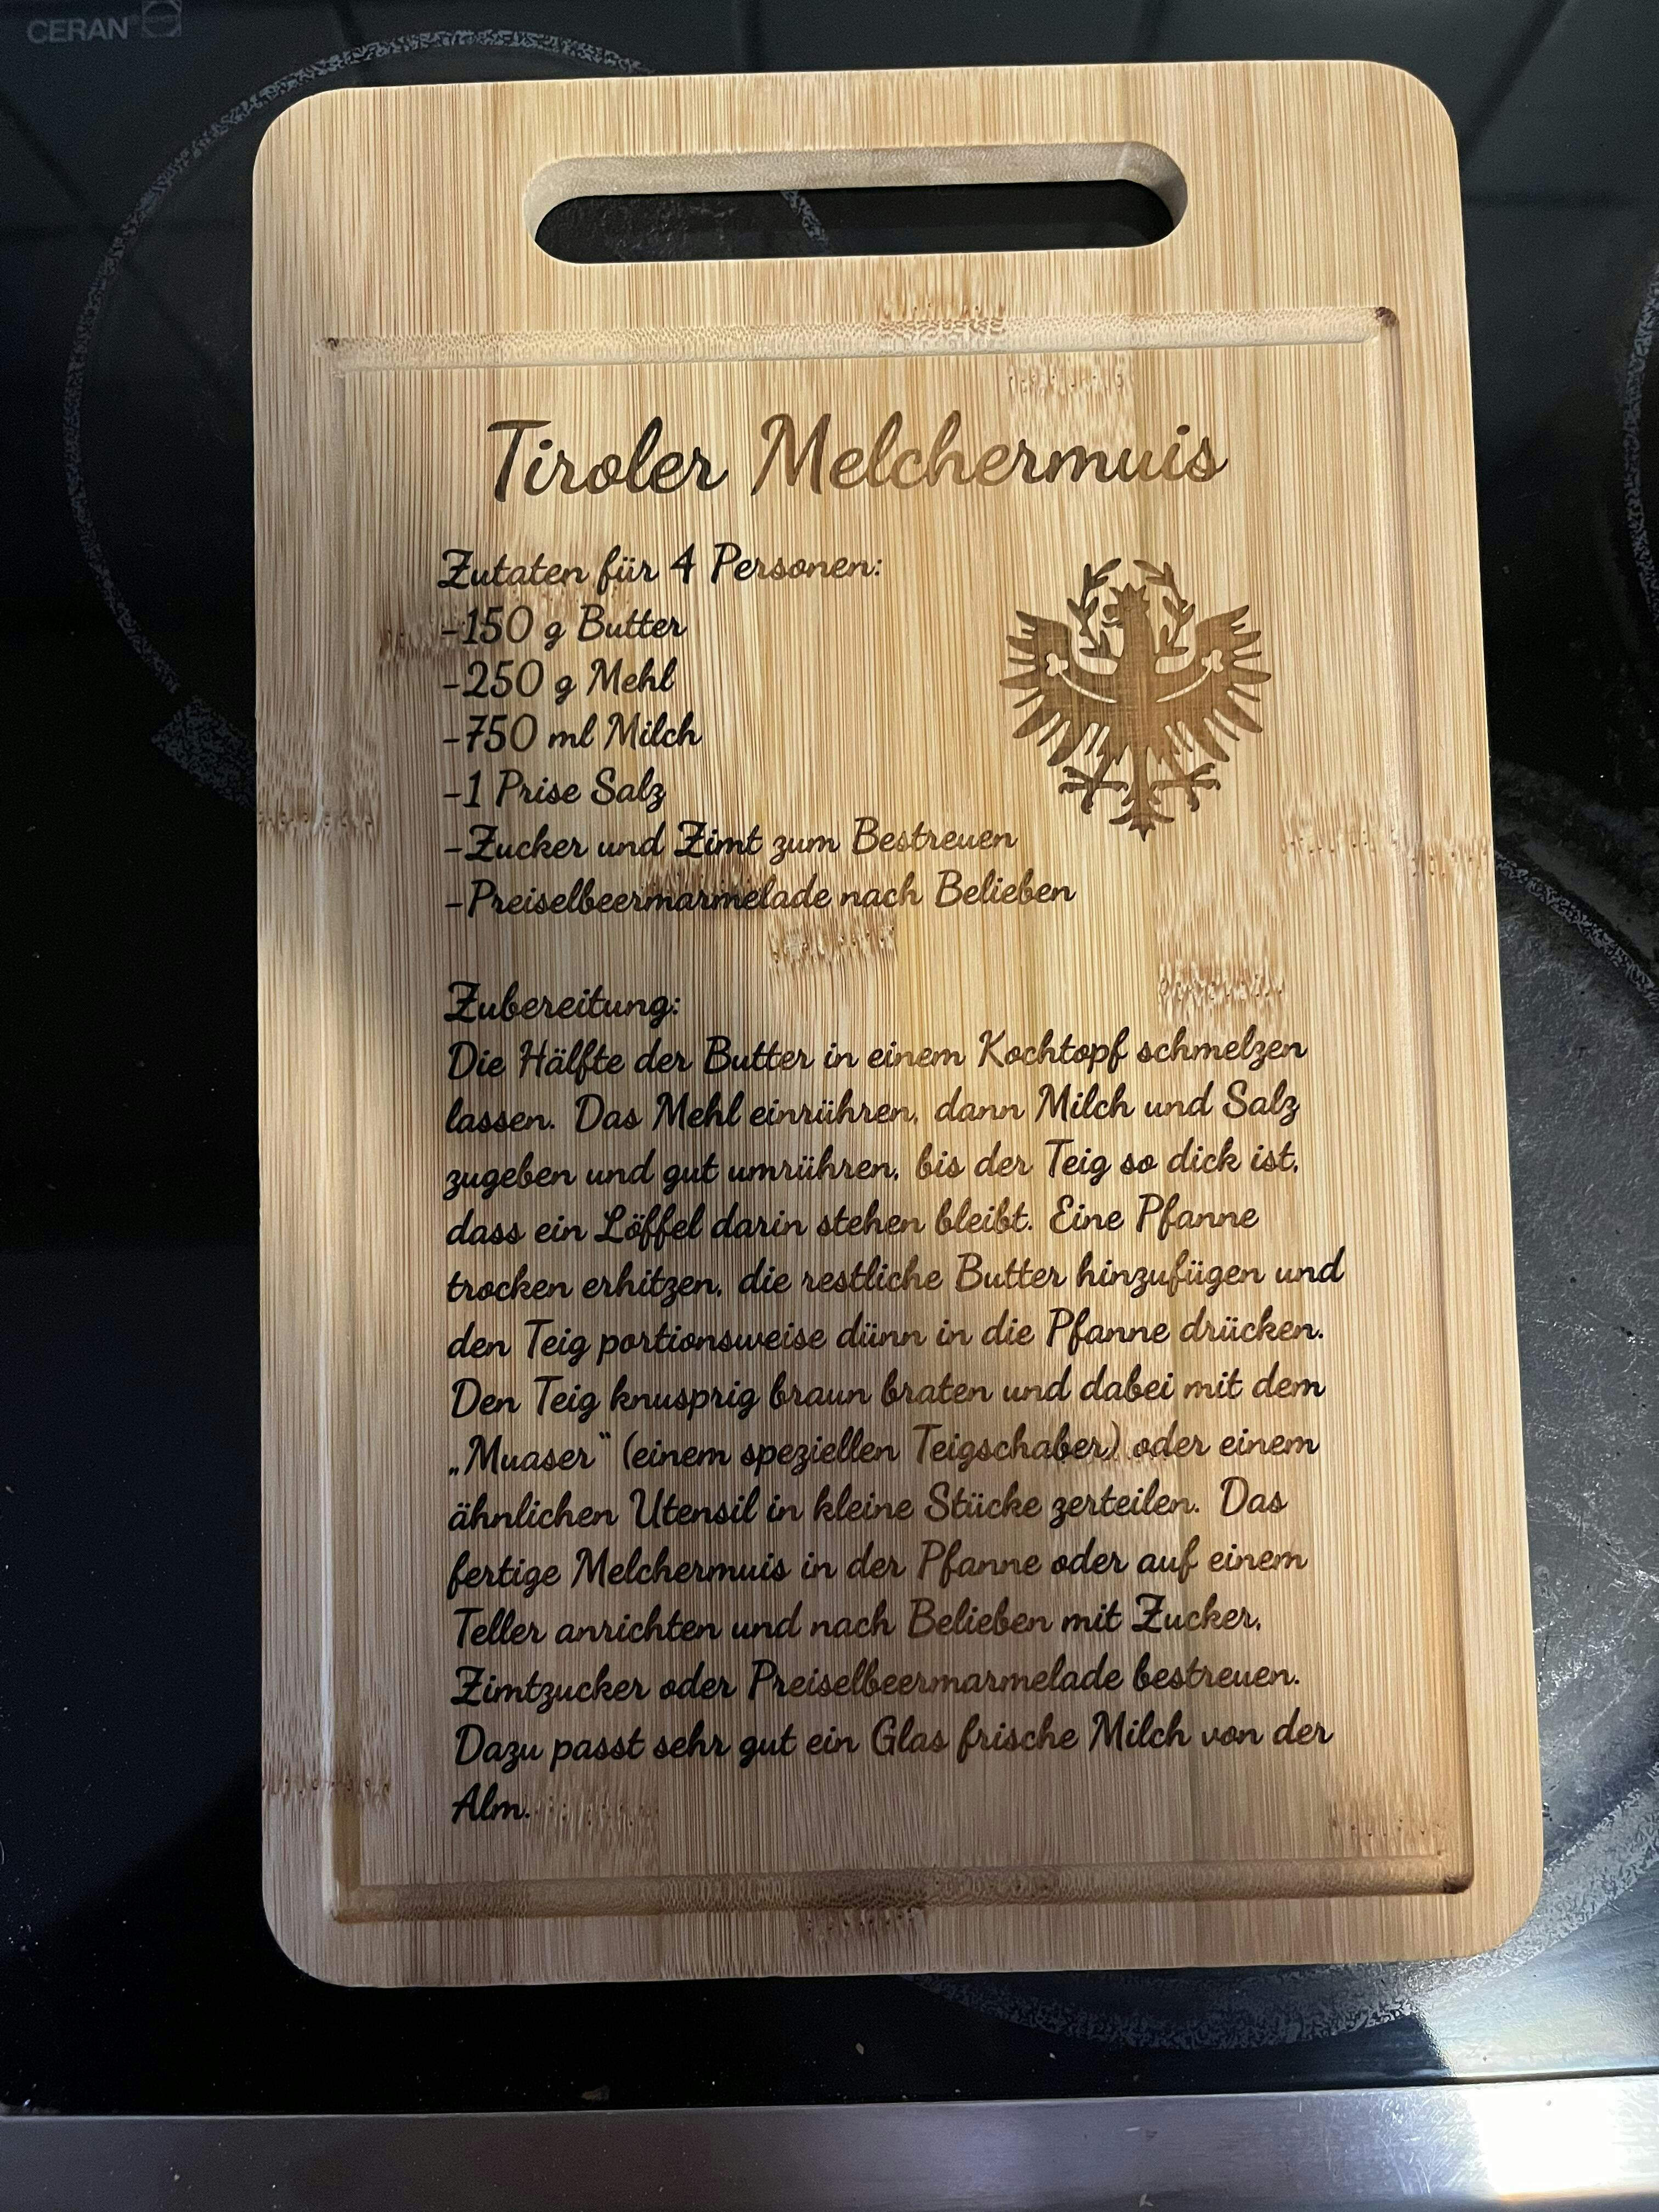 CERAN
Tiroler Melchermuis
Zutaten für 4 Personen:
-150 g Butter
-250 g Mehl
-750 ml Milch
-1 Prise Salz
-Zucker und Zimt zum Bestreuen
-Preiselbeermarmelade nach Belieben
Zubereitung:
Die Hälfte der Butter in einem Kochtopf schmelzen
lassen. Das Mehl einrühren, dann Milch und Salz
zugeben und gut umrühren, bis der Teig so dick ist,
dass ein Löffel darin stehen bleibt. Eine Pfanne
trocken erhitzen, die restliche Butter hinzufügen und
den Teig portionsweise dünn in die Pfanne drücken.
Den Teig knusprig braun braten und dabei mit dem
„Muaser“ (einem speziellen Teigschaber) oder einem
ähnlichen Utensil in kleine Stücke zerteilen. Das
fertige Melchermuis in der Pfanne oder auf einem
Teller anrichten und nach Belieben mit Zucker,
Zimtzucker oder Preiselbeermarmelade bestreuen.
Dazu passt sehr gut ein Glas frische Milch von der
Alm.